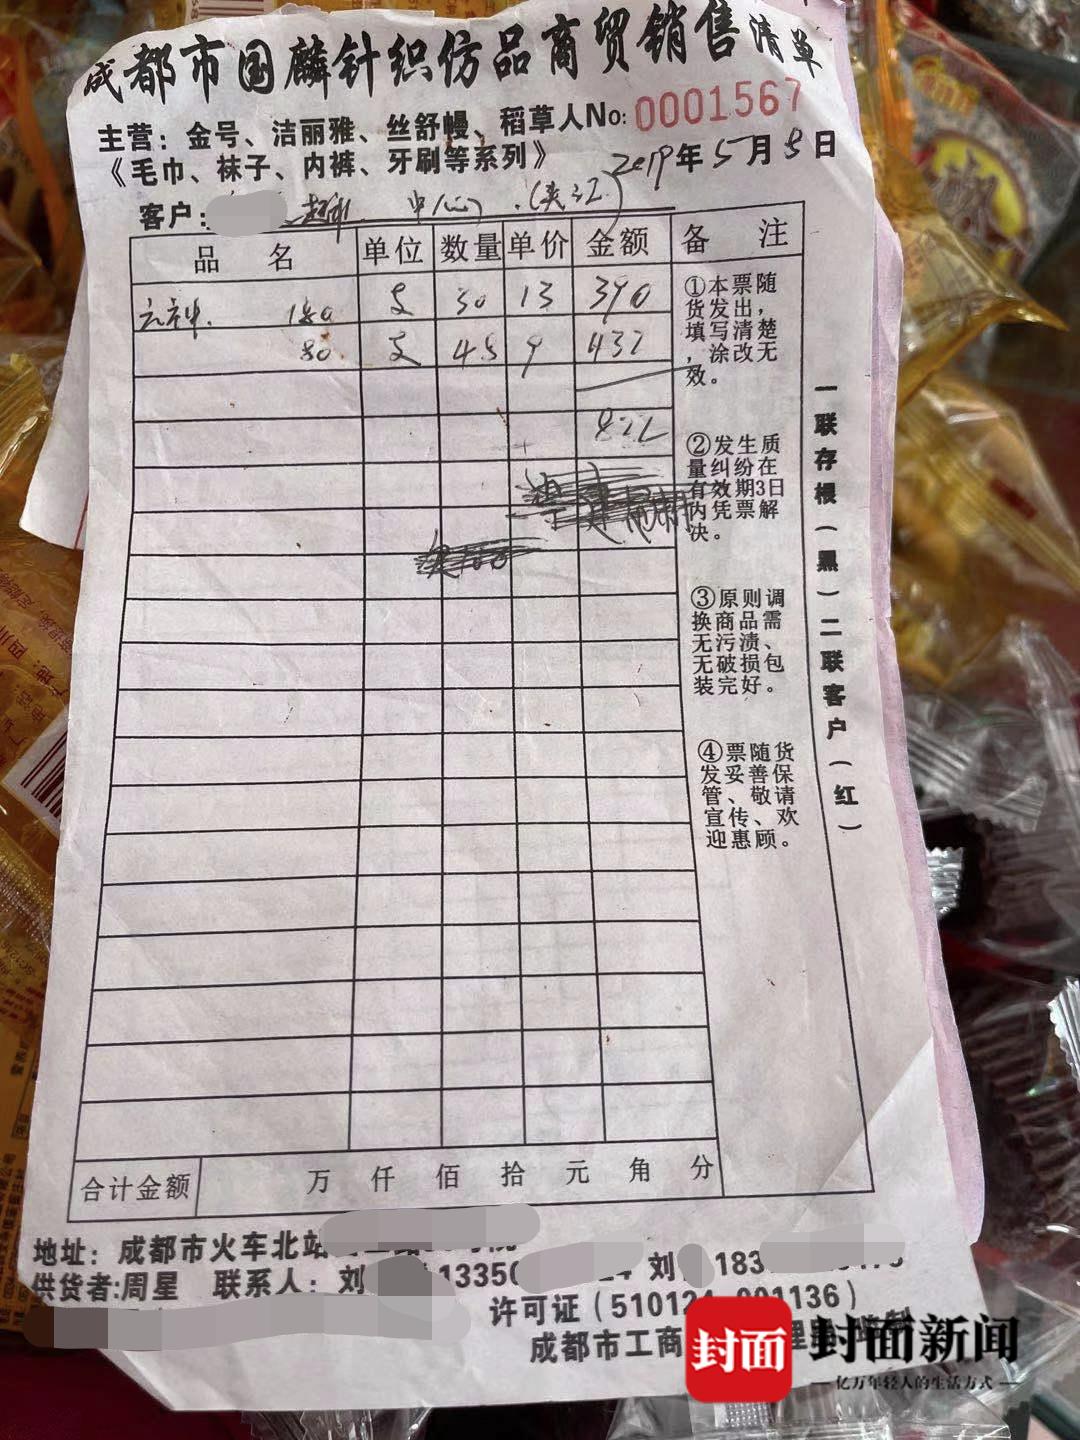 成都市国麟针织仿品商贸销售清单
主营：金号、洁丽雅、丝舒幔、稻草人No:0001567
《毛巾、袜子、内裤、牙刷等系列》 2019年5月8日
客户： 中心 (夹江)
品 名 单位 数量 单价 金额 备 注
180 支 30 13 390
80 支 48 9 432
822
①本票随
货发出，
填写清楚
，涂改无
效。
②发生质
量纠纷在
有效期3日
内凭票解
决。
③原则调
换商品需
无污渍、
无破损包
装完好。
④票随货
发妥善保
管、敬请
宣传、欢
迎惠顾。
一联存根(黑)二联客户(红)
合计金额 万 仟 佰 拾 元 角 分
地址：成都市火车北站
供货者:周星 联系人：刘 13350 24 刘 18
许可证(510124 001136)
成都市工商
封面 封面新闻
亿万年轻人的生活方式